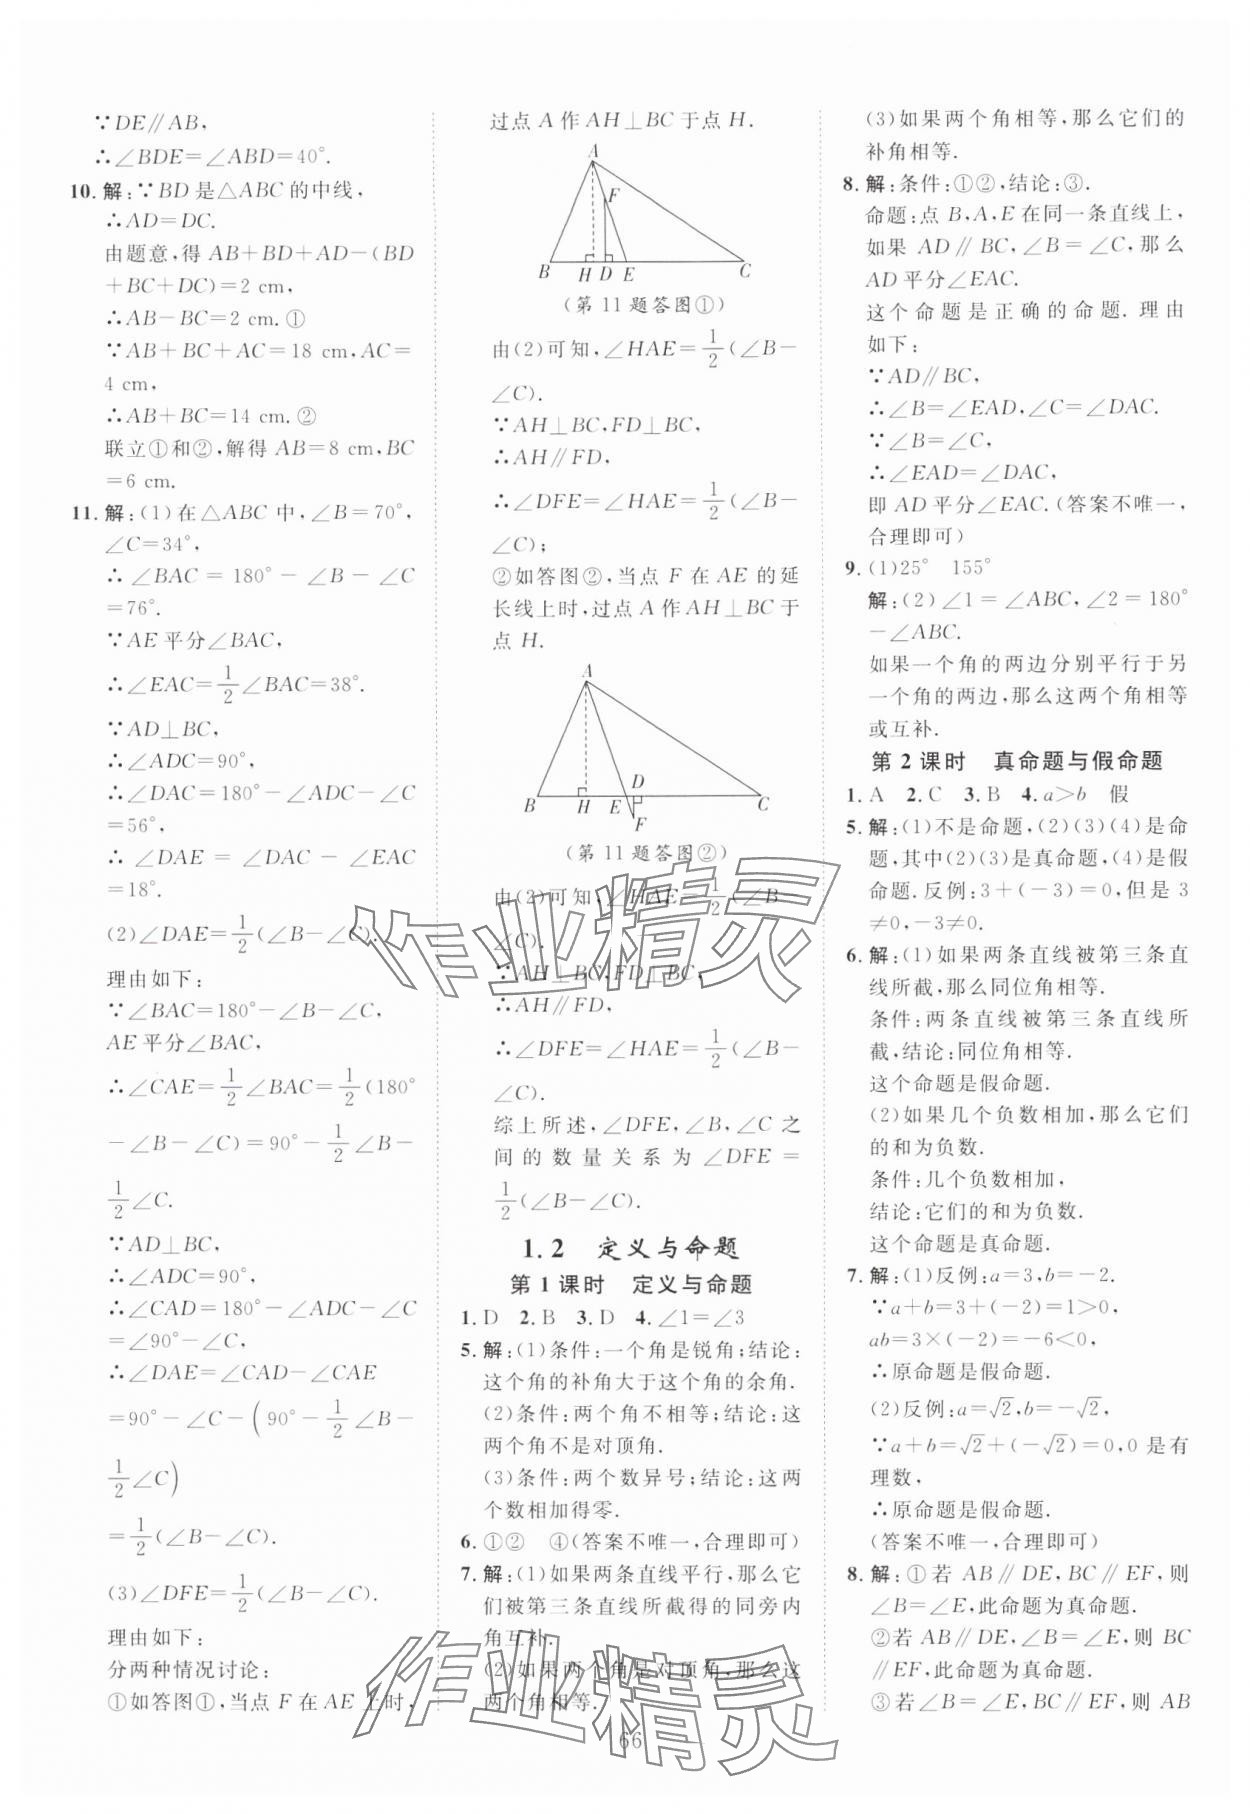 ∵DE∥AB,
∴∠BDE=∠ABD=40°.
10. 解:∵BD是△ABC的中线,
∴AD=DC.
由题意,得 AB+BD+AD-(BD
+BC+DC)=2 cm,
∴AB-BC=2 cm. ①
∵AB+BC+AC=18 cm,AC=
4 cm,
∴AB+BC=14 cm. ②
联立①和②,解得 AB=8 cm,BC
=6 cm.
11. 解:(1)在△ABC中,∠B=70°,
∠C=34°,
∴∠BAC=180°-∠B-∠C
=76°.
∵AE平分∠BAC,
∴∠EAC=1/2∠BAC=38°.
∵AD⊥BC,
∴∠ADC=90°,
∴∠DAC=180°-∠ADC-∠C
=56°,
∴∠DAE=∠DAC-∠EAC
=18°.
(2)∠DAE=1/2(∠B-∠C).
理由如下:
∵∠BAC=180°-∠B-∠C,
AE平分∠BAC,
∴∠CAE=1/2∠BAC=1/2(180°
-∠B-∠C)=90°-1/2∠B-
1/2∠C.
∵AD⊥BC,
∴∠ADC=90°,
∴∠CAD=180°-∠ADC-∠C
=∠90°-∠C,
∴∠DAE=∠CAD-∠CAE
=90°-∠C-(90°-1/2∠B-
1/2∠C)
=1/2(∠B-∠C).
(3)∠DFE=1/2(∠B-∠C).
理由如下:
分两种情况讨论:
①如答图①,当点F在AE上时,
过点A作AH⊥BC于点H.
A
F
B H D E C
(第11题答图①)
由(2)可知,∠HAE=1/2(∠B-
∠C).
∵AH⊥BC,FD⊥BC,
∴AH∥FD,
∴∠DFE=∠HAE=1/2(∠B-
∠C);
②如答图②,当点F在AE的延
长线上时,过点A作AH⊥BC于
点H.
A
D
B H E C
F
(第11题答图②)
由(2)可知,∠HAE=1/2(∠B-
∠C).
∵AH⊥BC,FD⊥BC,
∴AH∥FD,
∴∠DFE=∠HAE=1/2(∠B-
∠C).
综上所述,∠DFE,∠B,∠C之
间的数量关系为∠DFE=
1/2(∠B-∠C).
1.2 定义与命题
第1课时 定义与命题
1. D 2. B 3. D 4. ∠1=∠3
5. 解:(1)条件:一个角是锐角;结论:
这个角的补角大于这个角的余角.
(2)条件:两个角不相等;结论:这
两个角不是对顶角.
(3)条件:两个数异号;结论:这两
个数相加得零.
6. ①② ④(答案不唯一,合理即可)
7. 解:(1)如果两条直线平行,那么它
们被第三条直线所截得的同旁内
角互补.
(2)如果两个角是对顶角,那么这
两个角相等.
(3)如果两个角相等,那么它们的
补角相等.
8. 解:条件:①②,结论:③.
命题:点B,A,E在同一条直线上,
如果AD∥BC,∠B=∠C,那么
AD平分∠EAC.
这个命题是正确的命题. 理由
如下:
∵AD∥BC,
∴∠B=∠EAD,∠C=∠DAC.
∵∠B=∠C,
∴∠EAD=∠DAC,
即AD平分∠EAC.(答案不唯一,
合理即可)
9. (1)25° 155°
解:(2)∠1=∠ABC,∠2=180°
-∠ABC.
如果一个角的两边分别平行于另
一个角的两边,那么这两个角相等
或互补.
第2课时 真命题与假命题
1. A 2. C 3. B 4. a>b 假
5. 解:(1)不是命题,(2)(3)(4)是命
题,其中(2)(3)是真命题,(4)是假
命题.反例:3+(-3)=0,但是3
≠0,-3≠0.
6. 解:(1)如果两条直线被第三条直
线所截,那么同位角相等.
条件:两条直线被第三条直线所
截,结论:同位角相等.
这个命题是假命题.
(2)如果几个负数相加,那么它们
的和为负数.
条件:几个负数相加,
结论:它们的和为负数.
这个命题是真命题.
7. 解:(1)反例:a=3,b=-2.
∵a+b=3+(-2)=1>0,
ab=3×(-2)=-6<0,
∴原命题是假命题.
(2)反例:a=√2,b=-√2,
∵a+b=√2+(-√2)=0,0是有
理数,
∴原命题是假命题.
(答案不唯一,合理即可)
8. 解:①若AB∥DE,BC∥EF,则
∠B=∠E,此命题为真命题.
②若AB∥DE,∠B=∠E,则BC
∥EF,此命题为真命题.
③若∠B=∠E,BC∥EF,则AB
作业精灵
作业精灵
66